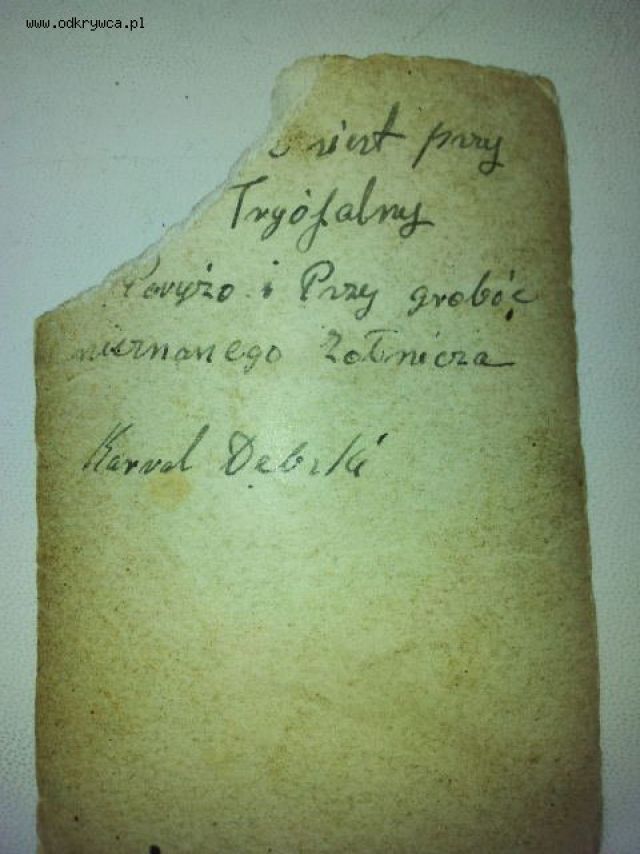 www.odkrywca.pl
przy
Tryófalny
i Przy grobóc
nieznanego Zołnieza
Karol Dębski